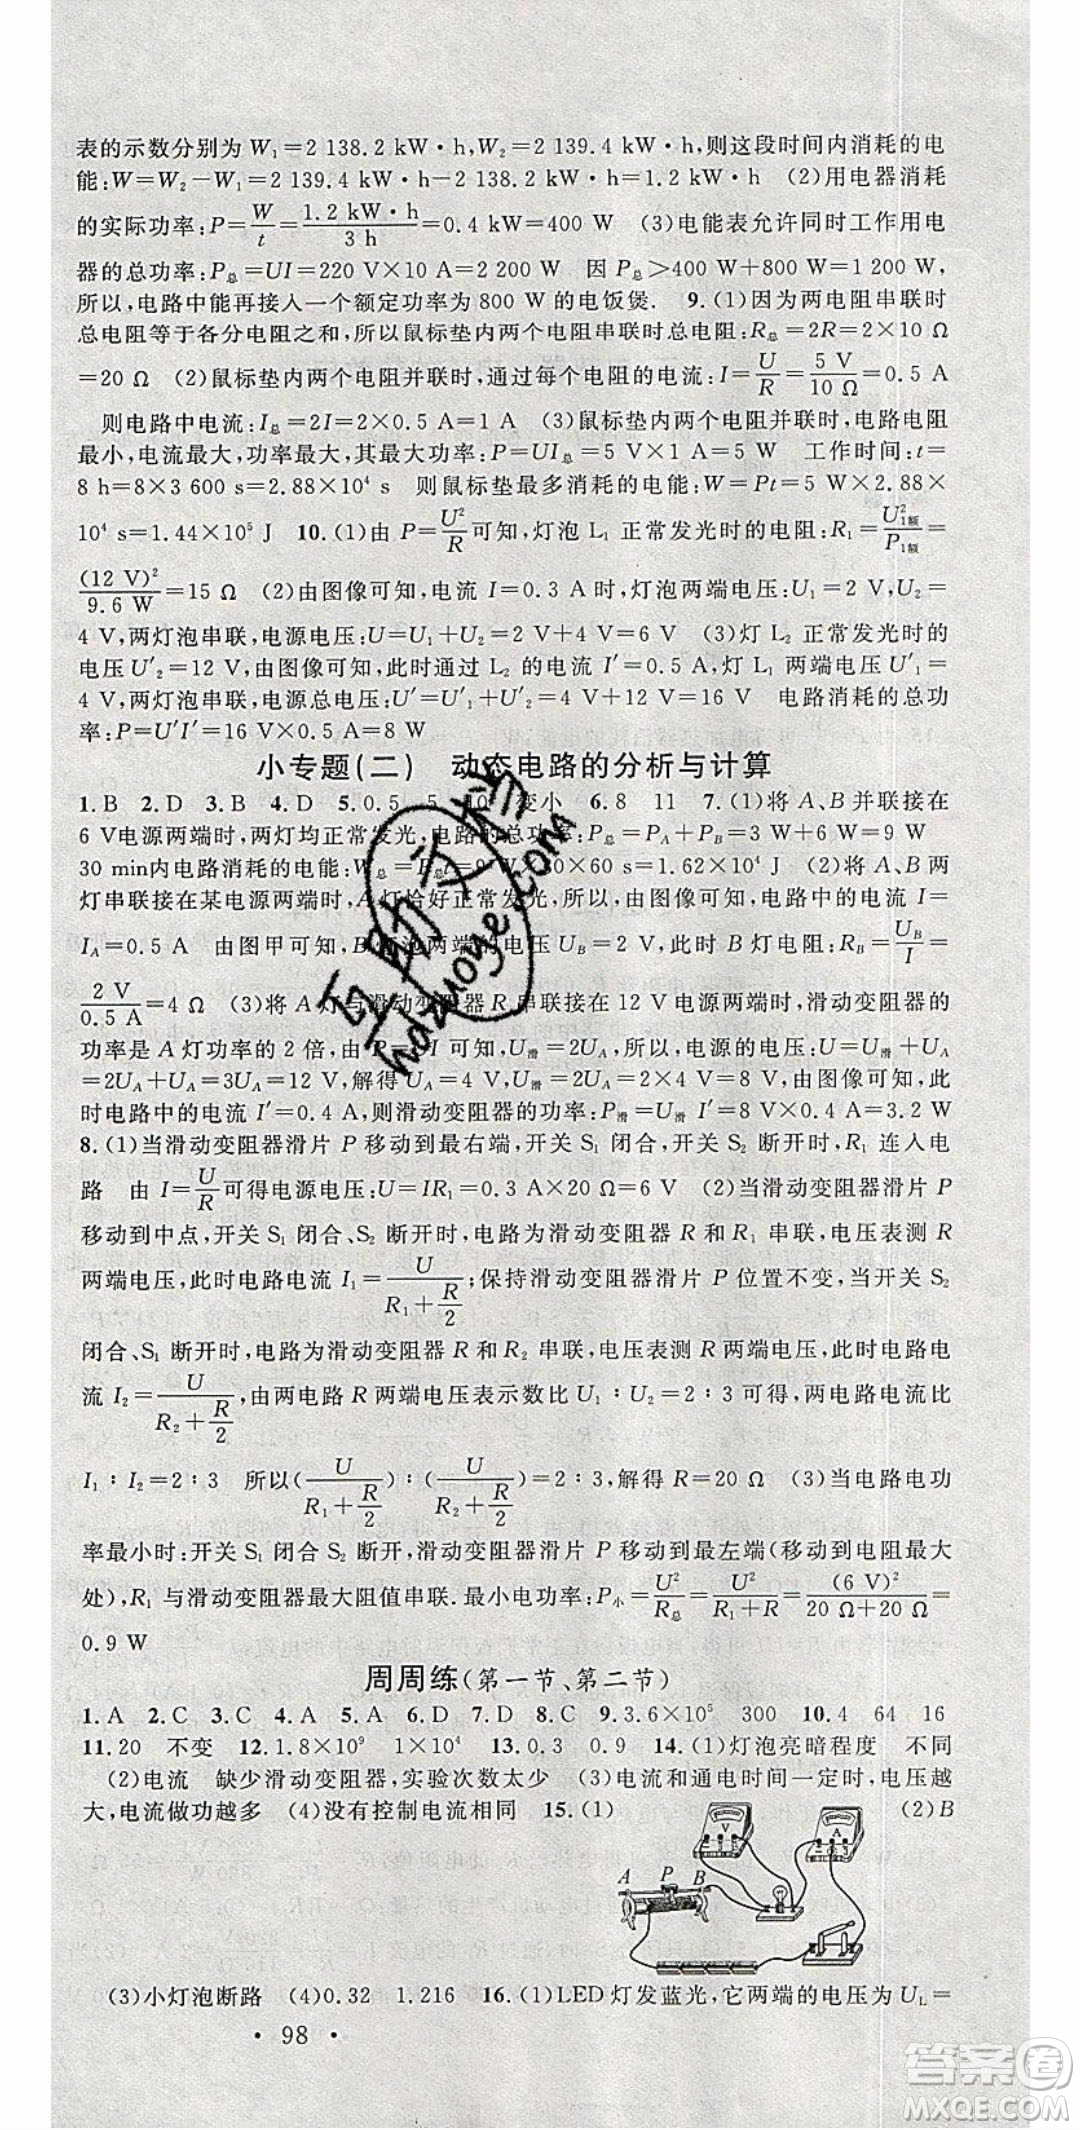 表的示数分别为 W₁=2 138.2 kW·h,W₂=2 139.4 kW·h,则这段时间内消耗的电
能:W=W₂-W₁=2 139.4 kW·h-2 138.2 kW·h=1.2 kW·h (2)用电器消耗
的实际功率:P=W/t=1.2 kW·h/3 h=0.4 kW=400 W (3)电能表允许同时工作用电
器的总功率:P总=UI=220 V×10 A=2 200 W 因 P总>400 W+800 W=1 200 W,
所以,电路中能再接入一个额定功率为 800 W 的电饭煲. 9.(1)因为两电阻串联时
总电阻等于各分电阻之和,所以鼠标垫内两个电阻串联时总电阻:R总=2R=2×10 Ω
=20 Ω (2)鼠标垫内两个电阻并联时,通过每个电阻的电流:I=U/R=5 V/10 Ω=0.5 A
则电路中电流:I总=2I=2×0.5 A=1 A (3)鼠标垫内两个电阻并联时,电路电阻
最小,电流最大,功率最大,其最大功率:P=UI总=5 V×1 A=5 W 工作时间:t=
8 h=8×3 600 s=2.88×10⁴ s 则鼠标垫最多消耗的电能:W=Pt=5 W×2.88×
10⁴ s=1.44×10⁵ J 10.(1)由 P=U²/R可知,灯泡 L₁ 正常发光时的电阻:R₁=U²₁额/P₁额=
(12 V)²/9.6 W=15 Ω (2)由图像可知,电流 I=0.3 A 时,灯泡两端电压:U₁=2 V,U₂=
4 V,两灯泡串联,电源电压:U=U₁+U₂=2 V+4 V=6 V (3)灯 L₂ 正常发光时的
电压 U′₂=12 V,由图像可知,此时通过 L₂ 的电流 I′=0.5 A,灯 L₁ 两端电压 U′₁=
4 V,两灯泡串联,电源总电压:U′=U′₁+U′₂=4 V+12 V=16 V 电路消耗的总功
率:P=U′I′=16 V×0.5 A=8 W
小专题(二) 动态电路的分析与计算
1.B 2.D 3.B 4.D 5.0.5 5 10 变小 6.8 11 7.(1)将 A、B 并联接在
6 V电源两端时,两灯均正常发光,电路的总功率:P总=PA+PB=3 W+6 W=9 W
30 min内电路消耗的电能:W总=P总t=9 W×30×60 s=1.62×10⁴ J (2)将 A、B 两
灯串联接在某电源两端时,A灯恰好正常发光,由图像可知,此时电路中的电流 I=
IA=0.5 A 由图甲可知,B灯泡两端的电压 UB=2 V,此时 B 灯电阻:RB=UB/I=
2 V/0.5 A=4 Ω (3)将 A 灯与滑动变阻器 R 串联接在 12 V 电源两端时,滑动变阻器的
功率是 A 灯功率的 2 倍,由 P=UI 可知,U滑=2UA,所以,电源的电压:U=U滑+UA
=2UA+UA=3UA=12 V,解得 UA=4 V,U滑=2UA=2×4 V=8 V,由图像可知,此
时电路中的电流 I′=0.4 A,则滑动变阻器的功率:P滑=U滑I′=8 V×0.4 A=3.2 W
8.(1)当滑动变阻器滑片 P 移动到最右端,开关 S₁ 闭合,开关 S₂ 断开时,R₁ 连入电
路 由 I=U/R可得电源电压:U=IR₁=0.3 A×20 Ω=6 V (2)当滑动变阻器滑片 P
移动到中点,开关 S₁ 闭合、S₂ 断开时,电路为滑动变阻器 R 和 R₁ 串联,电压表测 R
两端电压,此时电路电流 I₁=U/(R₁+R/2);保持滑动变阻器滑片 P 位置不变,当开关 S₂
闭合、S₁ 断开时,电路为滑动变阻器 R 和 R₂ 串联,电压表测 R 两端电压,此时电路电
流 I₂=U/(R₂+R/2),由两电路 R 两端电压表示数比 U₁∶U₂=2∶3 可得,两电路电流比
I₁∶I₂=2∶3 所以(U/(R₁+R/2))∶(U/(R₂+R/2))=2∶3,解得 R=20 Ω (3)当电路电功
率最小时:开关 S₁ 闭合 S₂ 断开,滑动变阻器滑片 P 移动到最左端(移动到电阻最大
处),R₁ 与滑动变阻器最大阻值串联.最小电功率:P小=U²/R总=U²/(R₁+R)=(6 V)²/(20 Ω+20 Ω)=
0.9 W
周周练(第一节、第二节)
1.A 2.C 3.C 4.A 5.A 6.D 7.D 8.C 9.3.6×10⁵ 300 10.4 64 16
11.20 不变 12.1.8×10⁹ 1×10⁴ 13.0.3 0.9 14.(1)灯泡亮暗程度 不同
(2)电流 缺少滑动变阻器,实验次数太少 (3)电流和通电时间一定时,电压越
大,电流做功越多 (4)没有控制电流相同 15.(1) (2)B
V A
A P B
(3)小灯泡断路 (4)0.32 1.216 16.(1)LED灯发蓝光,它两端的电压为 UL=
• 98 •
互助文档
hdzuoye.com
答案圈
MXQE.COM